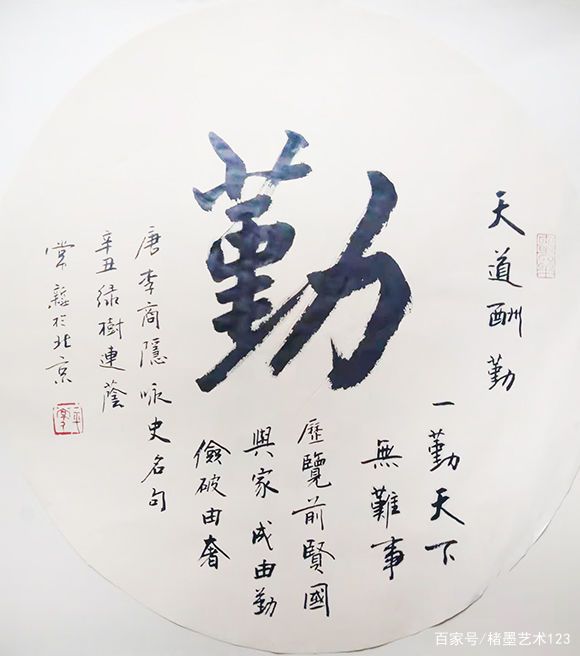 勤
天道酬勤
一勤天下
無難事
歷覽前賢國
與家成由勤
儉破由奢
唐李商隱咏史名句
辛丑绿樹連蔭
於北京
百家号/楮墨艺术123